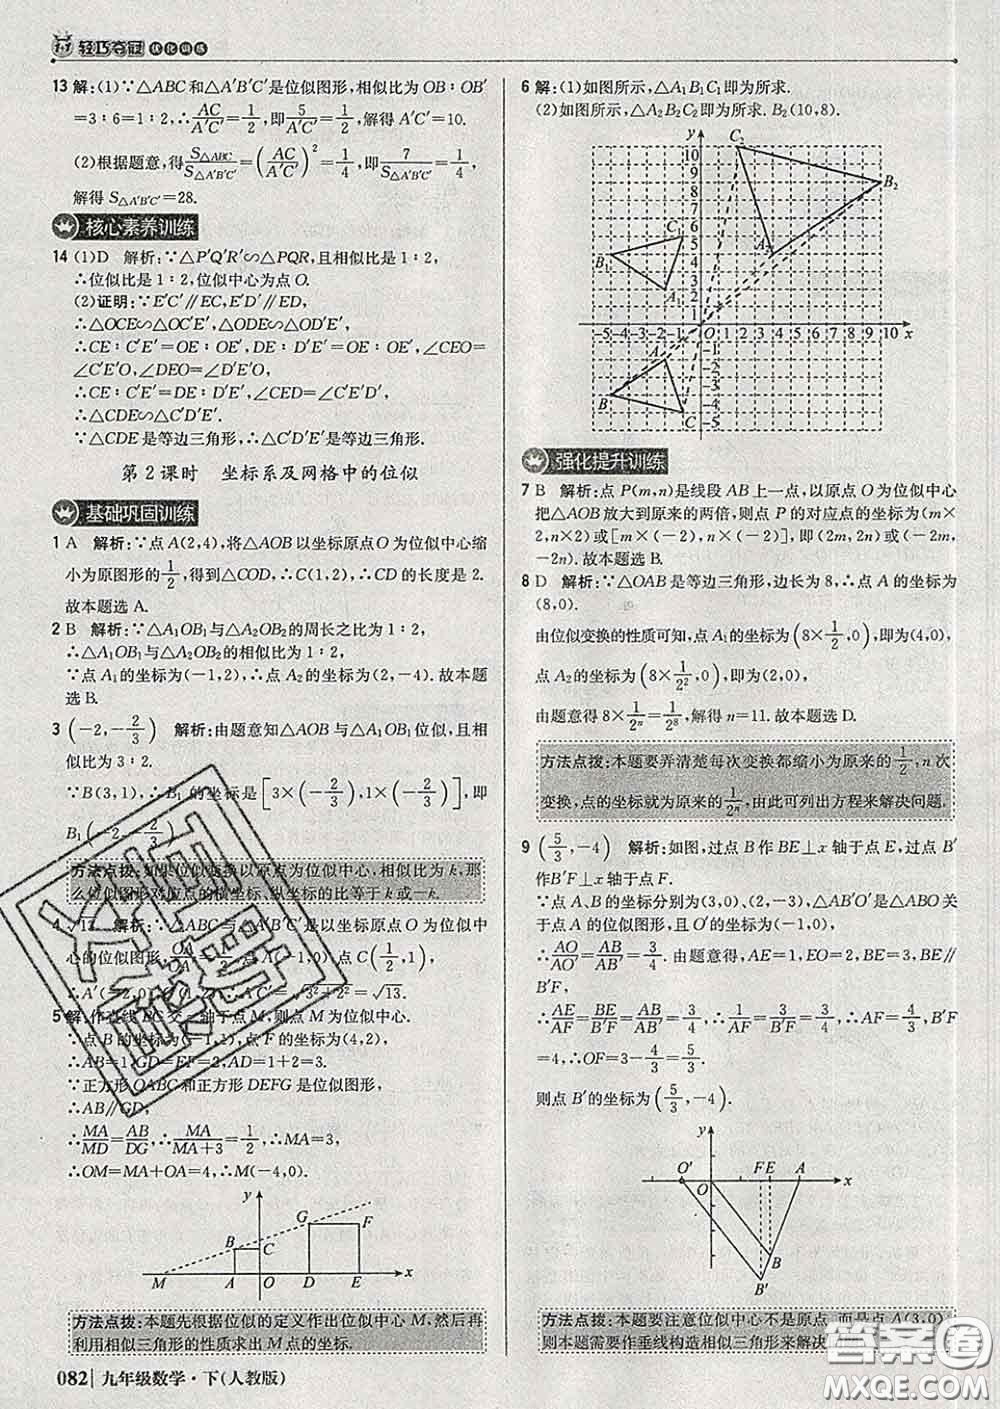 轻巧夺冠 优化训练
13 解:(1)∵△ABC和△A′B′C′是位似图形,相似比为OB∶OB′
=3∶6=1∶2,∴AC/A′C′=1/2,即5/A′C′=1/2,解得A′C′=10.
(2)根据题意,得S△ABC/S△A′B′C′=(AC/A′C′)²=1/4,即7/S△A′B′C′=1/4,
解得S△A′B′C′=28.
核心素养训练
14 (1)D 解析:∵△P′Q′R′∽△PQR,且相似比是1∶2,
∴位似比是1∶2,位似中心为点O.
(2)证明:∵E′C′∥EC,E′D′∥ED,
∴△OCE∽△OC′E′,△ODE∽△OD′E′,
∴CE∶C′E′=OE∶OE′,DE∶D′E′=OE∶OE′,∠CEO=
∠C′E′O,∠DEO=∠D′E′O,
∴CE∶C′E′=DE∶D′E′,∠CED=∠C′E′D′,
∴△CDE∽△C′D′E′.
∵△CDE是等边三角形,∴△C′D′E′是等边三角形.
第2课时 坐标系及网格中的位似
基础巩固训练
1 A 解析:∵点A(2,4),将△AOB以坐标原点O为位似中心缩
小为原图形的1/2,得到△COD,∴C(1,2),∴CD的长度是2.
故本题选A.
2 B 解析:∵△A₁OB₁与△A₂OB₂的周长之比为1∶2,
∴△A₁OB₁与△A₂OB₂的相似比为1∶2,
∵点A₁的坐标为(-1,2),∴点A₂的坐标为(2,-4).故本题
选B.
3 (-2,-2/3) 解析:由题意知△AOB与△A₁OB₁位似,且相
似比为3∶2.
∵B(3,1),∴B₁的坐标是[3×(-2/3),1×(-2/3)],即
B₁(-2,-2/3).
方法点拨:如果位似变换以原点为位似中心,相似比为k,那
么位似图形对应点的横坐标、纵坐标的比等于k或-k.
4 √13 解析:∵△ABC与△A′B′C′是以坐标原点O为位似中
心的位似图形,OA/OA′=1/2,点A(-1,0),点C(1/2,1),
∴A′(-2,0),C′(1,2),∴A′C′=√3²+2²=√13.
5 解:作直线BC交x轴于点M,则点M为位似中心.
∵点B的坐标为(-1,1),点F的坐标为(4,2),
∴AB=1,GD=EF=2,AD=1+2=3.
∵正方形OABC和正方形DEFG是位似图形,
∴AB∥GD,
∴MA/MD=AB/DG=MA/MA+3=1/2,∴MA=3,
∴OM=MA+OA=4,∴M(-4,0).
y
G F
B C
M A O D E x
方法点拨:本题先根据位似的定义作出位似中心M,然后再
利用相似三角形的性质求出M点的坐标.
082 九年级数学·下(人教版)
6 解:(1)如图所示,△A₁B₁C₁即为所求.
(2)如图所示,△A₂B₂C₂即为所求.B₂(10,8).
y C₂
10
9
8 B₂
7
6
C₁ 5
B₁ 4 A₂
3
A₁ 2
1
-5 -4 -3 -2 -1 O 1 2 3 4 5 6 7 8 9 10 x
-1
A -2
-3
B -4
C -5
强化提升训练
7 B 解析:点P(m,n)是线段AB上一点,以原点O为位似中心
把△AOB放大到原来的两倍,则点P的对应点的坐标为(m×
2,n×2)或[m×(-2),n×(-2)],即(2m,2n)或(-2m,
-2n).故本题选B.
8 D 解析:∵△OAB是等边三角形,边长为8,∴点A的坐标为
(8,0).
由位似变换的性质可知,点A₁的坐标为(8×1/2,0),即(4,0),
点A₂的坐标为(8×1/2²,0),即(2,0),
由题意得8×1/2ⁿ=1/2⁸,解得n=11.故本题选D.
方法点拨:本题要弄清楚每次变换都缩小为原来的1/2,n次
变换,点的坐标就为原来的1/2ⁿ,由此可列出方程来解决问题.
9 (5/3,-4) 解析:如图,过点B作BE⊥x轴于点E,过点B′
作B′F⊥x轴于点F.
∵点A、B的坐标分别为(3,0),(2,-3),△AB′O′是△ABO关
于点A的位似图形,且O′的坐标为(-1,0),
∴AO/AO′=AB/AB′=3/4.由题意得,AE=1,EO=2,BE=3,BE∥
B′F,
∴AE/AF=BE/B′F=AB/AB′=3/4,∴1/AF=3/B′F=3/4,∴AF=4/3,B′F
=4,∴OF=3-4/3=5/3,
则点B′的坐标为(5/3,-4).
y
O′ O F E A x
B
B′
方法点拨:本题要注意位似中心不是原点,而是点A(3,0),
则本题需要作垂线构造相似三角形来解决
答案圈
MXQE.COM